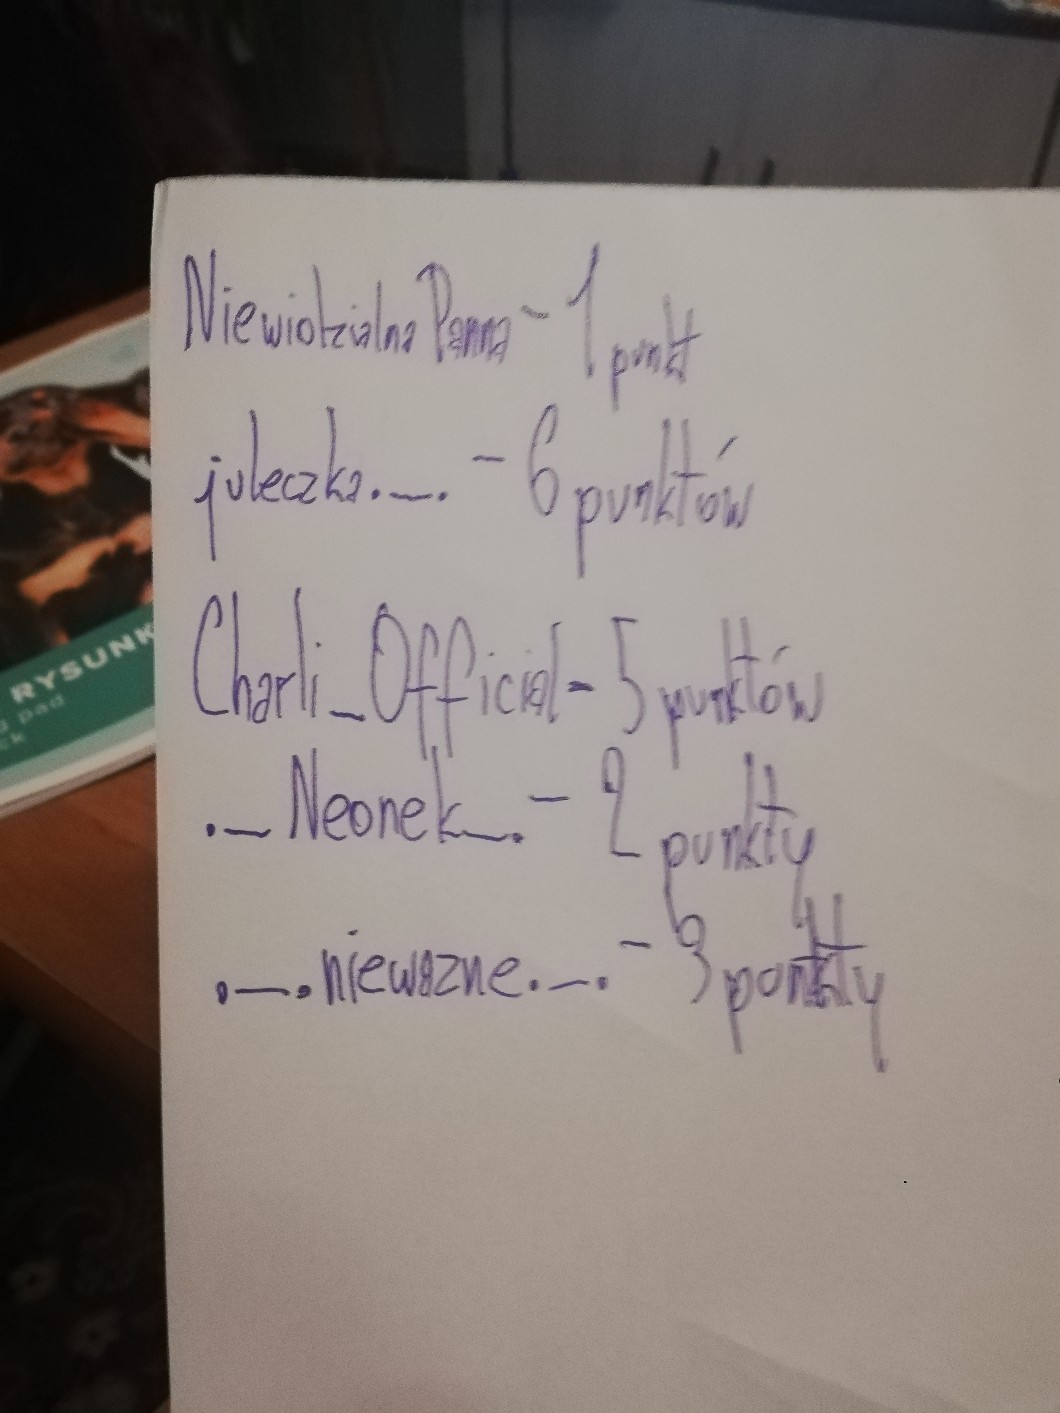 Niewidzialna Panna - 1 punkt
juleczka._. - 6 punktów
Charli_Official - 5 punktów
._Neonek_. - 2 punkty
._.niewazne._. - 3 punkty
RYSUNK
pad
ck